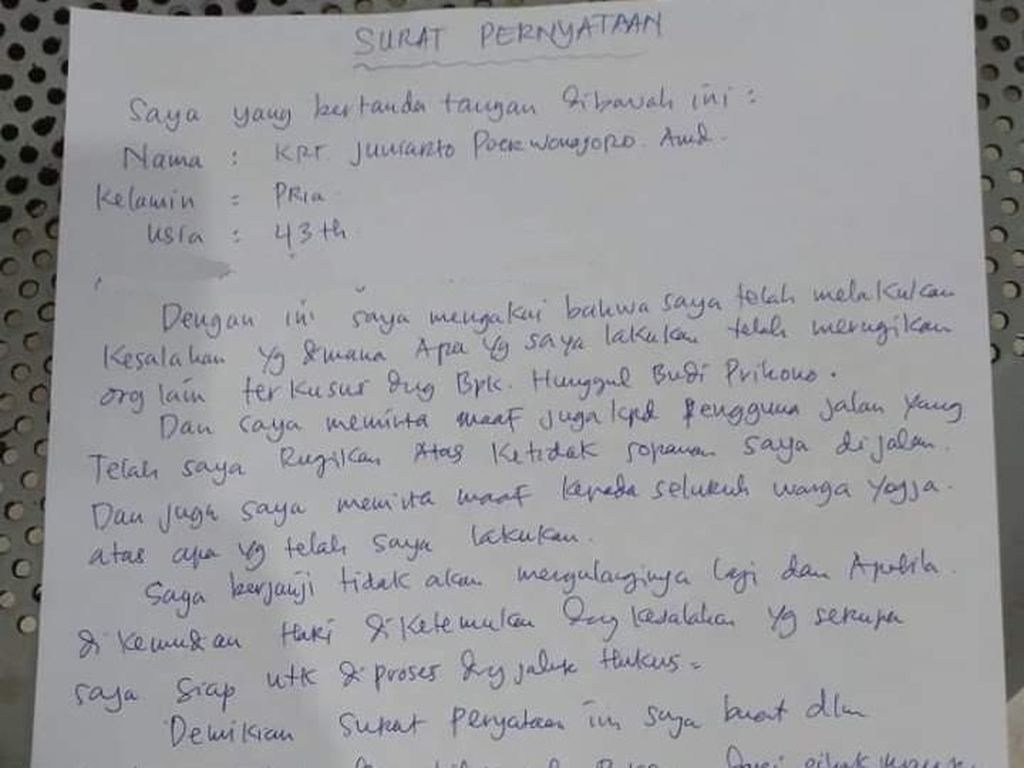 SURAT PERNYATAAN
Saya yang bertanda tangan dibawah ini :
Nama : KRT. Junianto Poerwonagoro. Amd.
Kelamin : PRia
usia : 43 th
Dengan ini saya mengakui bahwa saya telah melakukan
Kesalahan yg dmana Apa yg saya lakukan telah merugikan
org lain terkusus dng Bpk. Hunggul Budi Prihono.
Dan saya meminta maaf juga kpd Pengguna jalan yang
Telah saya Rugikan Atas Ketidak sopanan saya di jalan.
Dan juga saya meminta maaf kepada seluruh warga Yogja.
atas apa yg telah saya lakukan.
Saya berjanji tidak akan mengulanginya lagi dan Apabila
di kemudian Hari di ketemukan dng kesalahan yg serupa
saya siap utk di proses dng jalur Hukus.
Demikian surat peryataan ini saya buat dlm